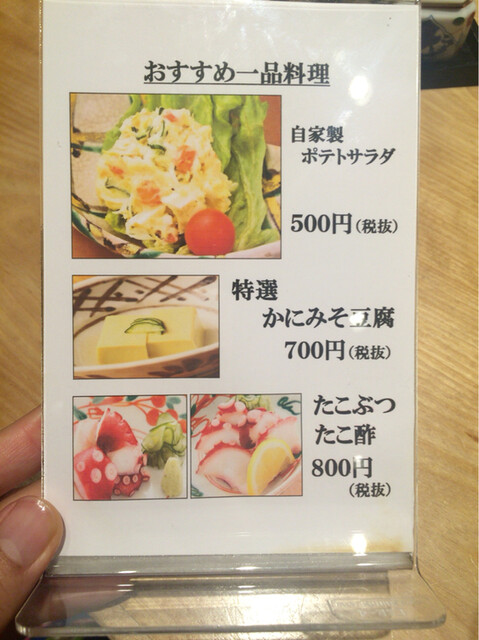 おすすめ一品料理
自家製
ポテトサラダ
500円(税抜)
特選
かにみそ豆腐
700円(税抜)
たこぶつ
たこ酢
800円
(税抜)